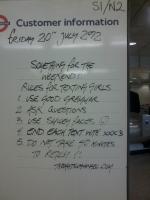 S1/N2
Customer information
FRIDAY 20TH JULY 2012
SOMETHING FOR THE
WEEKEND!
RULES FOR TEXTING GIRLS
1. USE GOOD GRAMMAR
2. ASK QUESTIONS
3. USE SMILEY FACES
4. END EACH TEXT WITH XXX
5. DO NOT TAKE 45 MINUTES
TO REPLY!